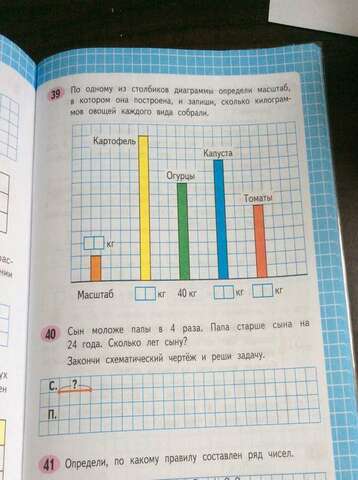 39 По одному из столбиков диаграммы определи масштаб,
в котором она построена, и запиши, сколько килограм-
мов овощей каждого вида собрали.
Картофель
Капуста
Огурцы
Томаты
кг
Масштаб кг 40 кг кг кг
40 Сын моложе папы в 4 раза. Папа старше сына на
24 года. Сколько лет сыну?
Закончи схематический чертёж и реши задачу.
С. ?
П.
41 Определи, по какому правилу составлен ряд чисел.